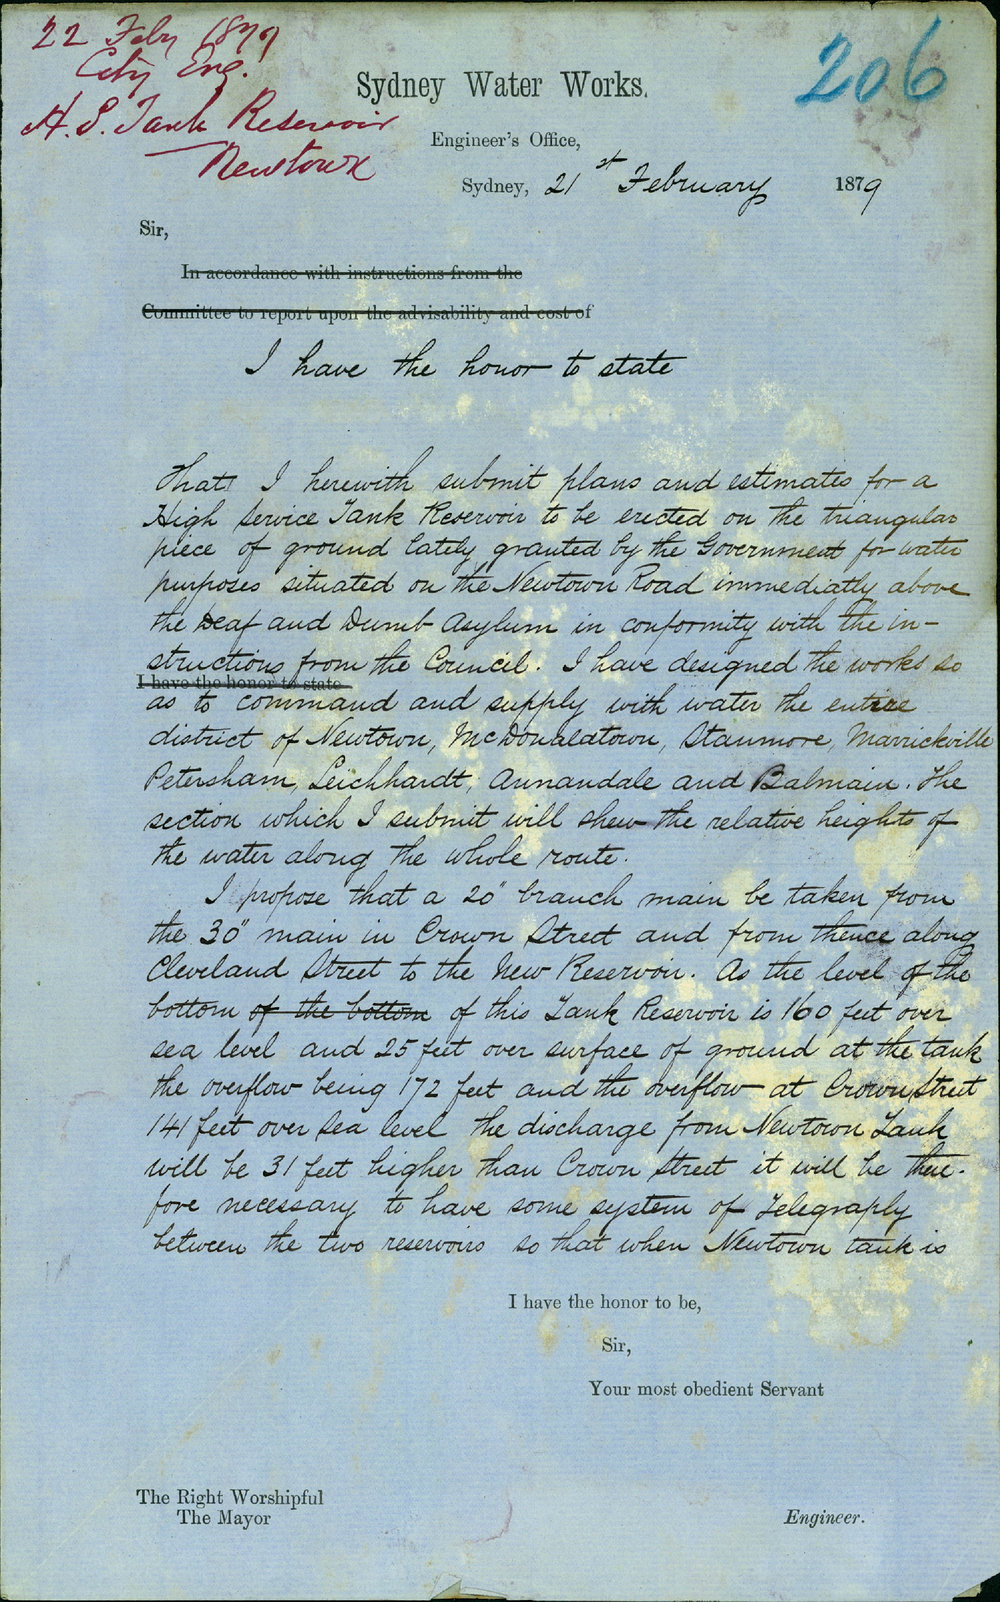 22 Feby 1879
City Eng.
H. S. Tank Reservoir
Newtown
206
Sydney Water Works.
Engineer's Office,
Sydney, 21st February 1879
Sir,
In accordance with instructions from the
Committee to report upon the advisability and cost of
I have the honor to state
That I herewith submit plans and estimates for a
High Service Tank Reservoir to be erected on the triangular
piece of ground lately granted by the Government for water
purposes situated on the Newtown Road immediatly above
the Deaf and Dumb Asylum in conformity with the in-
structions from the Council. I have designed the works so
I have the honor to state
as to command and supply with water the entire
district of Newtown, McDonaldtown, Stanmore, Marrickville
Petersham, Leichhardt, Annandale and Balmain. The
section which I submit will shew the relative heights of
the water along the whole route.
I propose that a 20" branch main be taken from
the 30" main in Crown Street and from thence along
Cleveland Street to the New Reservoir. As the level of the
bottom of the bottom of this Tank Reservoir is 160 feet over
sea level and 25 feet over surface of ground at the tank
the overflow being 172 feet and the overflow at Crown Street
141 feet over Sea level the discharge from Newtown Tank
will be 31 feet higher than Crown Street it will be there-
fore necessary to have some system of Telegraphy
between the two reservoirs so that when Newtown tank is
I have the honor to be,
Sir,
Your most obedient Servant
The Right Worshipful
The Mayor
Engineer.